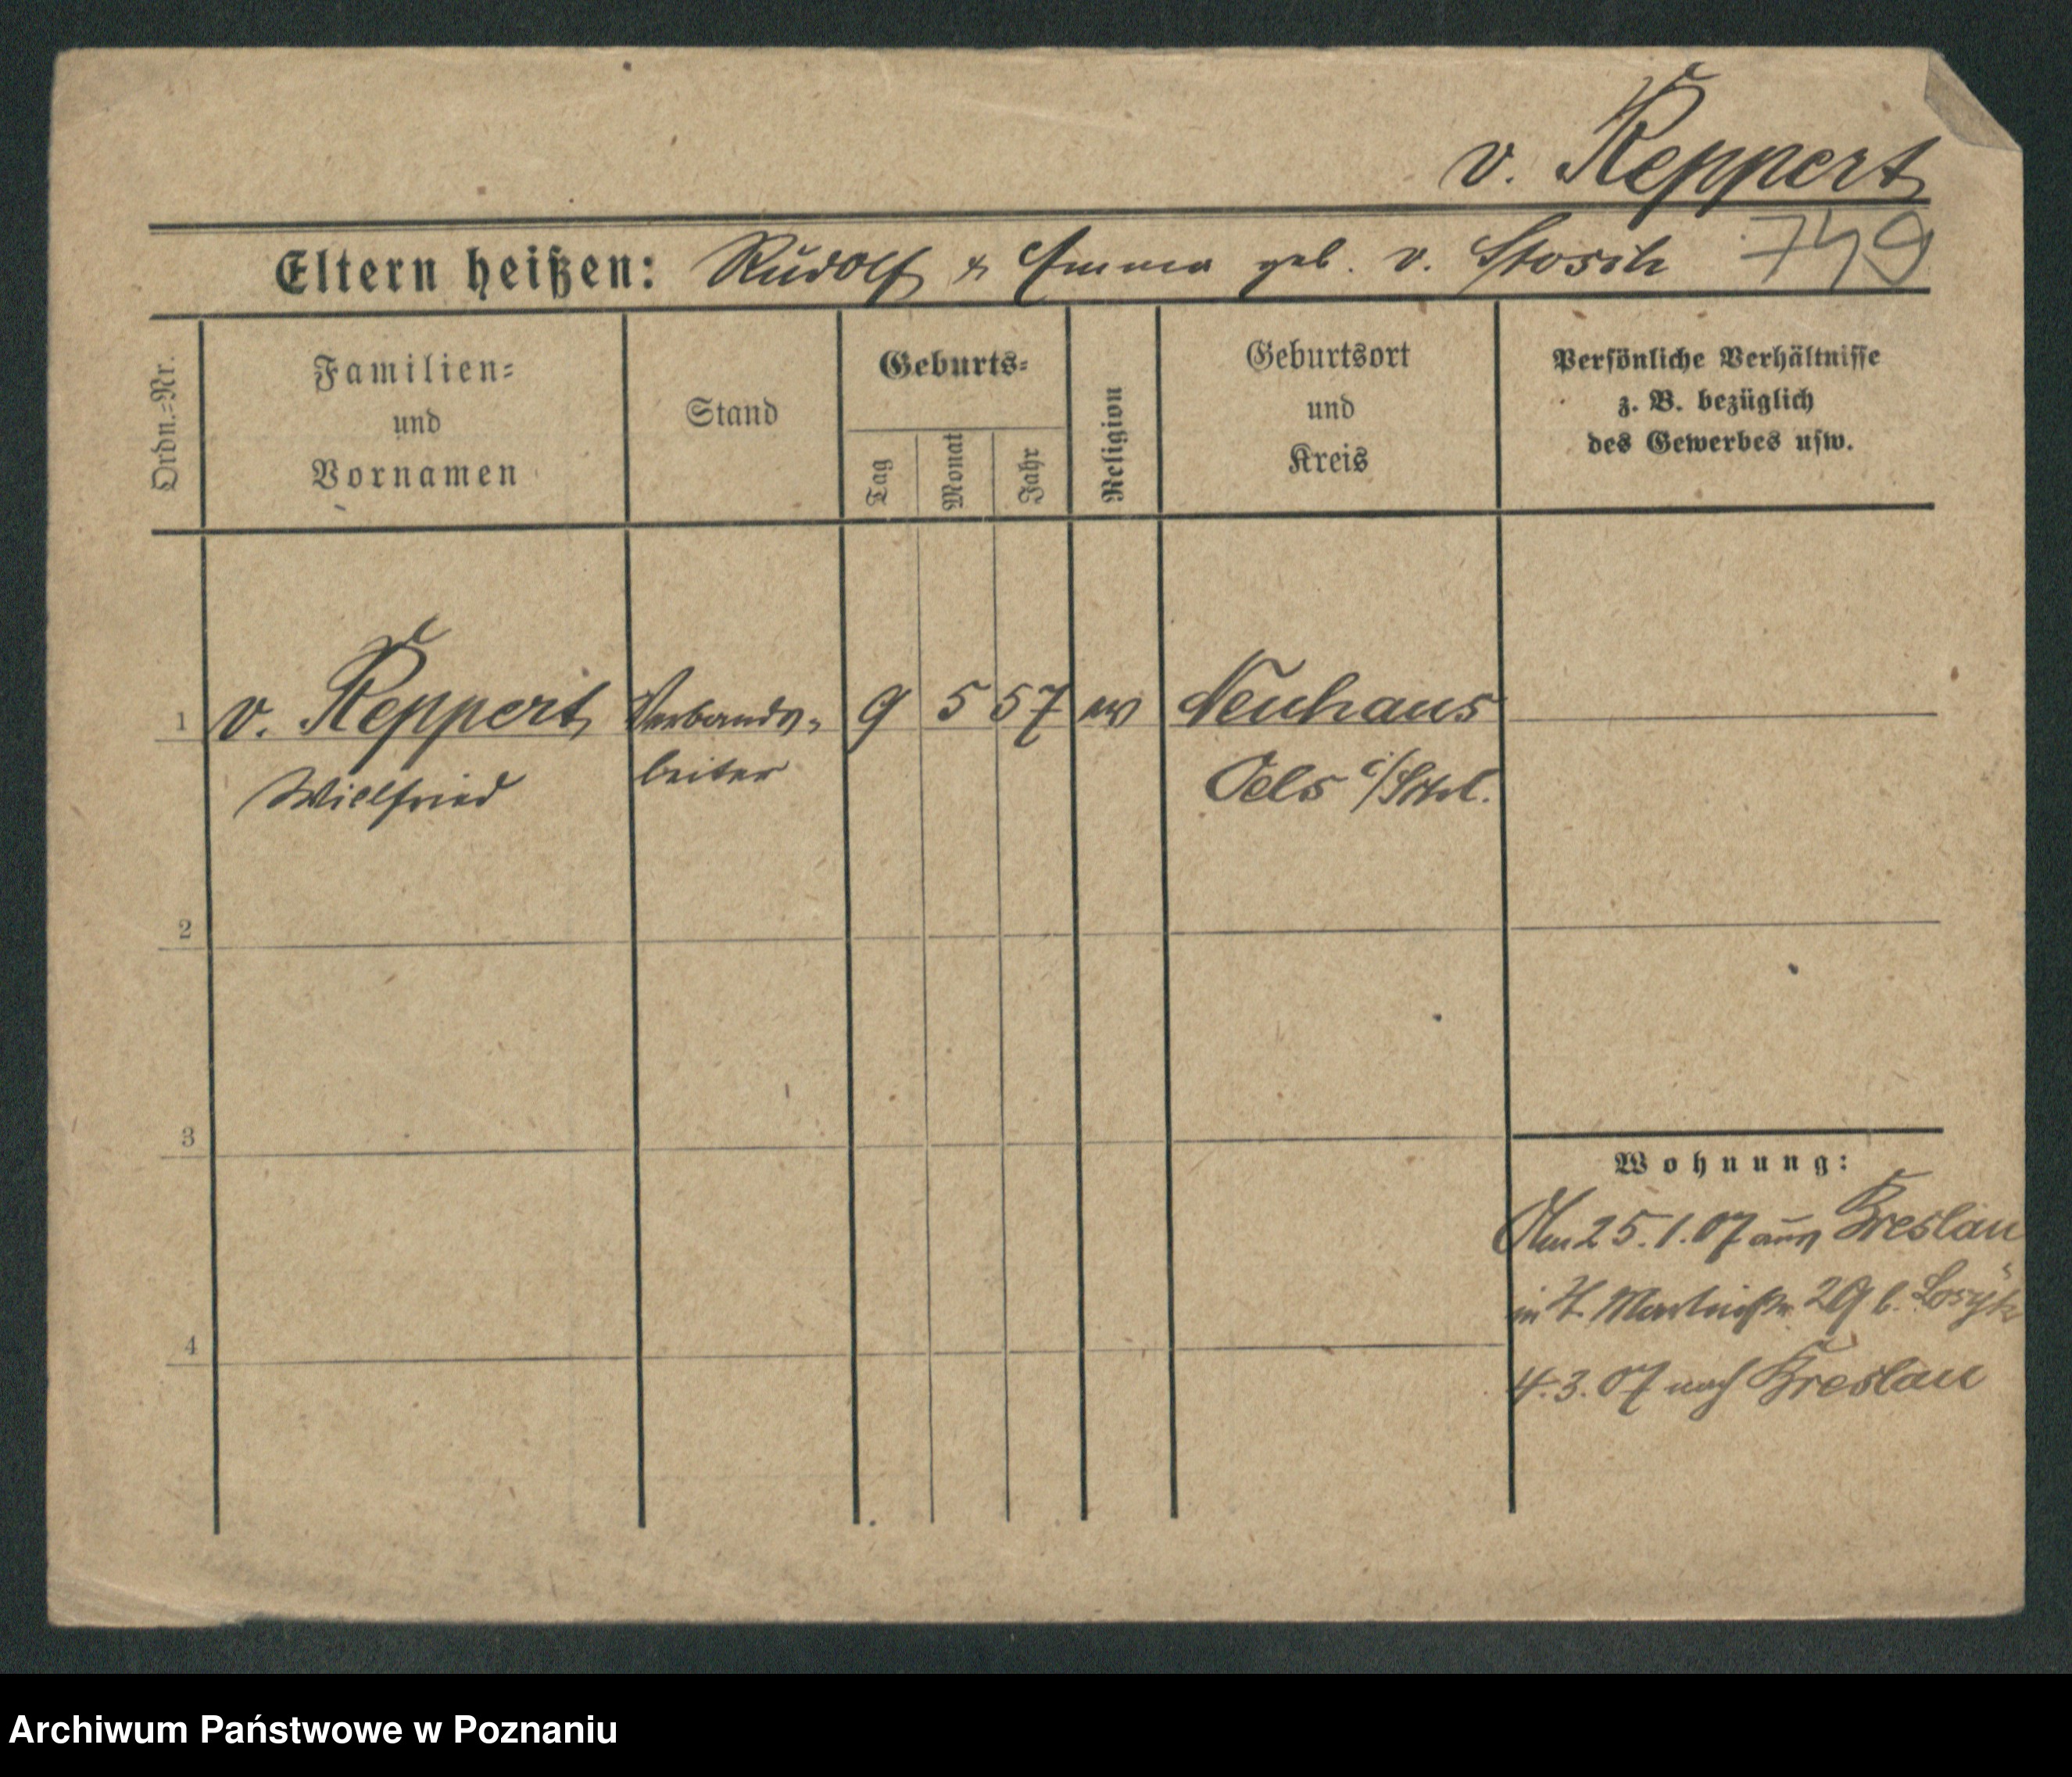 v. Reppert
749
Eltern heißen: Rudolf & Emma geb. v. Stosch
Ordn.=Nr.
Familien=
und
Vornamen
Stand
Geburts=
Tag
Monat
Jahr
Religion
Geburtsort
und
Kreis
Persönliche Verhältnisse
z. B. bezüglich
des Gewerbes usw.
1
v. Reppert
Willfried
Verbands=
leiter
9 5 57
ev
Neuhaus
Oels i/Schl.
2
3
4
Wohnung:
Am 25.1.07 aus Breslau
in St. Martinstr. 29 b.
4.3.07 nach Breslau
Archiwum Państwowe w Poznaniu